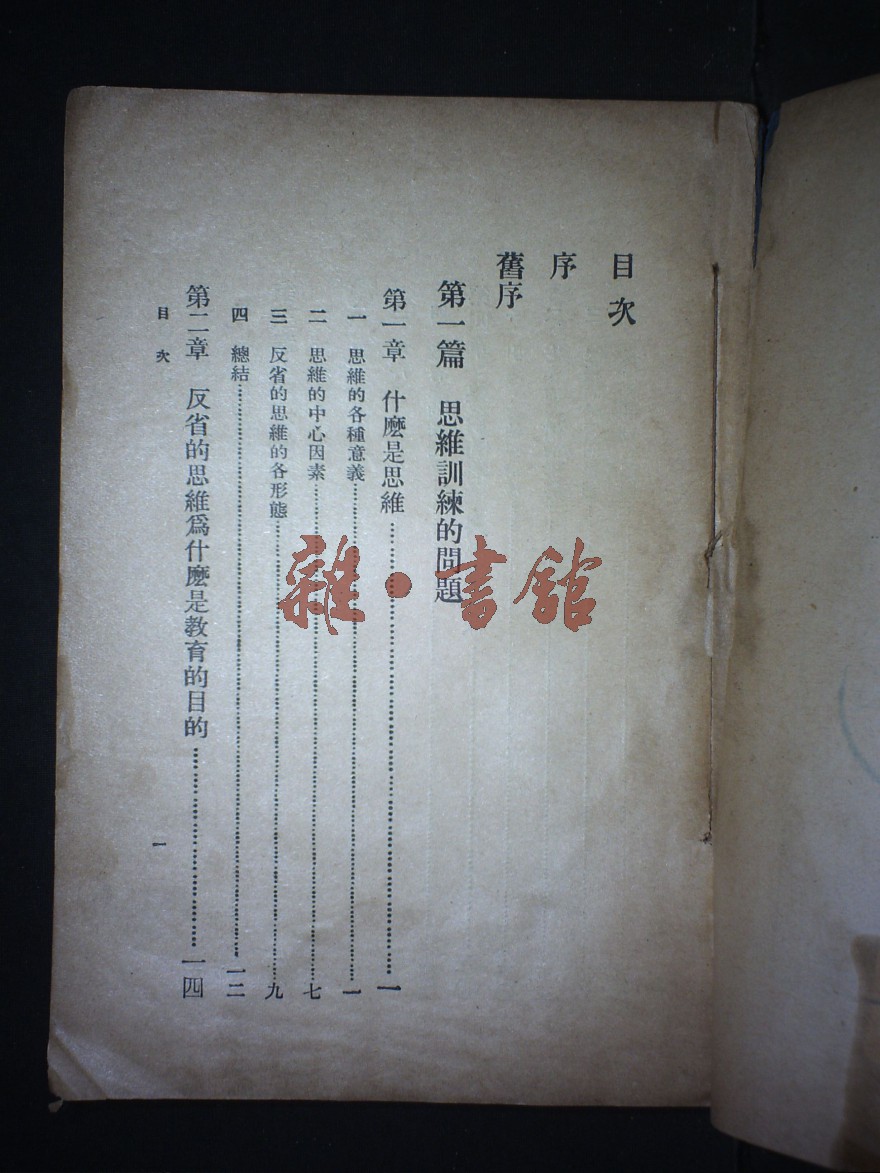 目次
序
舊序
第一篇 思維訓練的問題
第一章 什麼是思維……一
一 思維的各種意義……一
二 思維的中心因素……七
三 反省的思維的各形態……九
四 總結……一二
第二章 反省的思維爲什麼是教育的目的……一四
目次 一
雜·書館